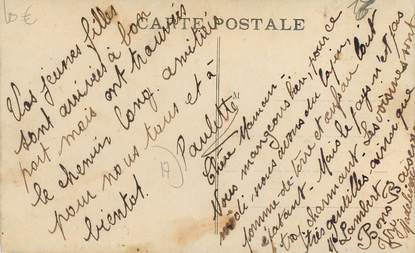 10 €
18
CARTE POSTALE
Vos jeunes filles
sont arrivées à bon
port mais ont trouvées
le chemin long. amitiés
pour nous tous et à
bientôt.
Paulette
19
Chère Maman.
Nous mangeons bien, pour ce
midi nous avons du lapin,
pomme de terre et c'est
épatant. Mais le pays n'est pas
trop charmant. Les voisines sont
très gentilles ainsi que
Me Lambert.
Bons Baisers